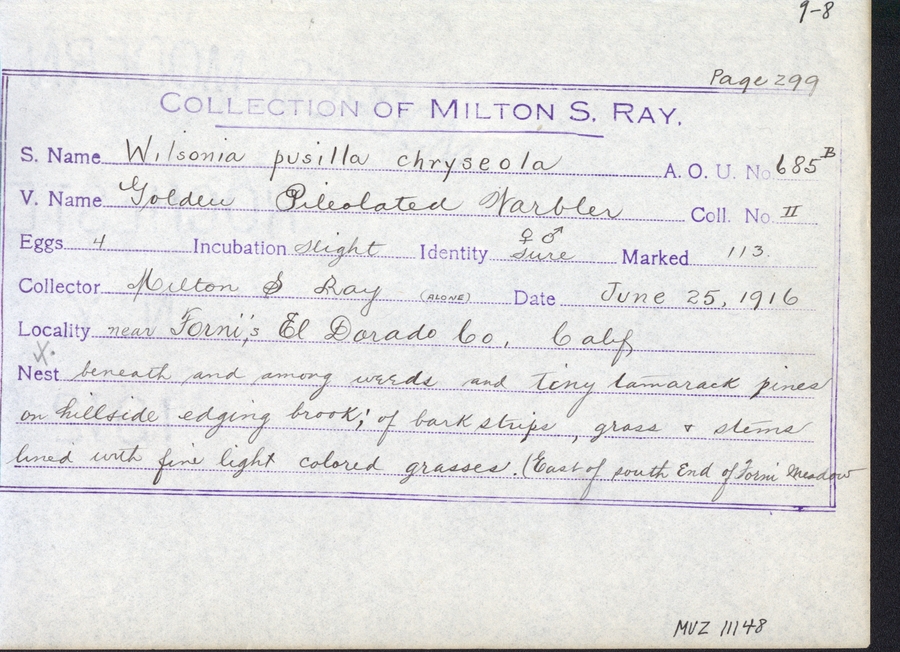 9-8
Page 299
COLLECTION OF MILTON S. RAY.
S. Name Wilsonia pusilla chryseola A. O. U. No. 685 B
V. Name Golden Pileolated Warbler Coll. No. II
Eggs 4 Incubation slight Identity ♀ ♂ sure Marked 113.
Collector Milton S Ray (ALONE) Date June 25, 1916
Locality near Forni's El Dorado Co, Calif
X.
Nest beneath and among weeds and tiny tamarack pines
on hillside edging brook; of bark strips, grass & stems
lined with fine light colored grasses. (East of south End of Forni Meadow
MVZ 11148